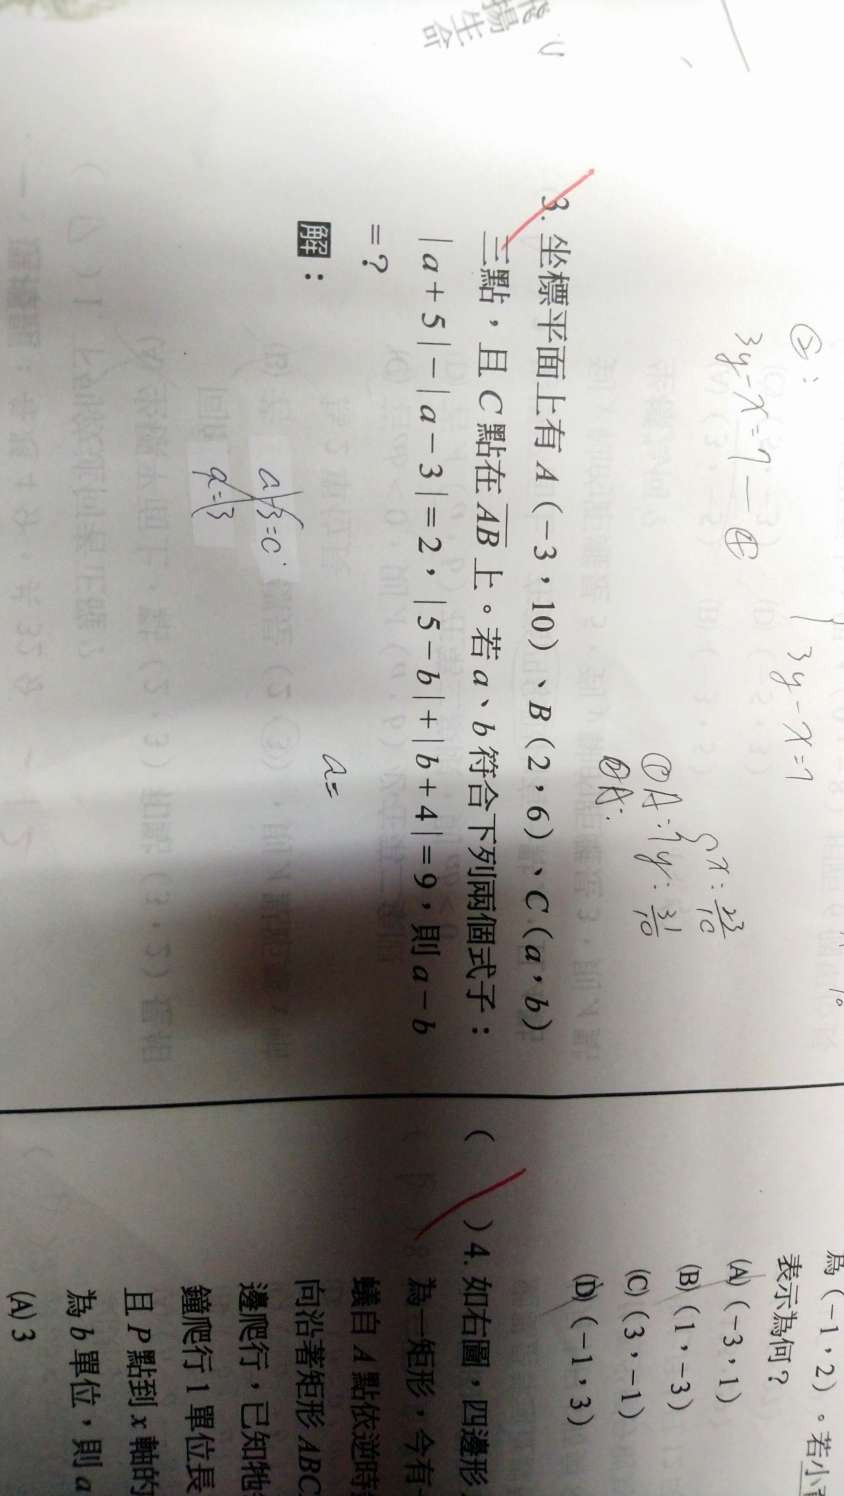 揚
生命
②:
3y-x=7—④
3y-x=7
①A:{x:23/10
y:31/10
②A:
3. 坐標平面上有 A（-3，10）、B（2，6）、C（a，b）
三點，且 C 點在 AB 上。若 a、b 符合下列兩個式子：
|a+5|-|a-3|=2，|5-b|+|b+4|=9，則 a-b
=？
解：
a=
為（-1，2）。若小
表示為何？
(A)（-3，1）
(B)（1，-3）
(C)（3，-1）
(D)（-1，3）
（　）4. 如右圖，四邊形
為一矩形，今有一
蟻自 A 點依逆時
向沿著矩形 ABC
邊爬行，已知牠
鐘爬行 1 單位長
且 P 點到 x 軸的
為 b 單位，則 a
(A) 3